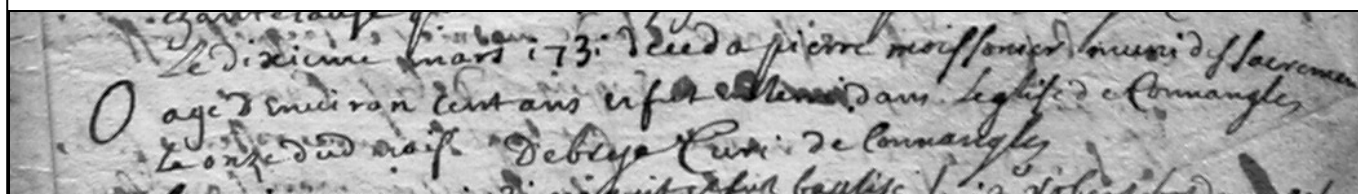 Le dixieme mars 1731 deceda pierre moissonier muni des sacremen
O age d'environ cent ans et fut enterré dans leglise de Connangles
le onze dud mois Curé de Connangles